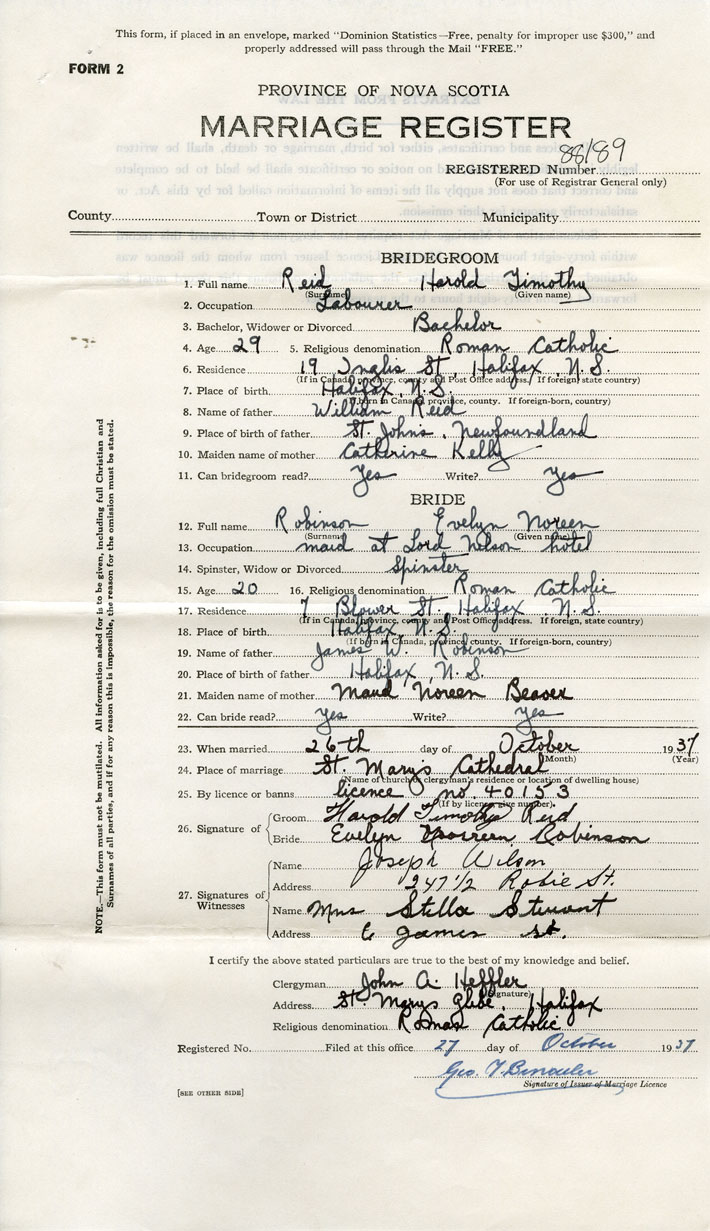 This form, if placed in an envelope, marked "Dominion Statistics—Free, penalty for improper use $300," and
properly addressed will pass through the Mail "FREE."
FORM 2
PROVINCE OF NOVA SCOTIA
MARRIAGE REGISTER
REGISTERED Number 88/89
(For use of Registrar General only)
County Town or District Municipality
BRIDEGROOM
1. Full name Reid Harold Timothy
(Surname) (Given name)
2. Occupation Labourer
3. Bachelor, Widower or Divorced Bachelor
4. Age 29 5. Religious denomination Roman Catholic
6. Residence 19 Inglis St, Halifax, N.S.
(If in Canada, province, county and Post Office address. If foreign, state country)
7. Place of birth Halifax, N.S.
(If born in Canada, province, county. If foreign-born, country)
8. Name of father William Reid
9. Place of birth of father St. John's, Newfoundland
10. Maiden name of mother Catherine Kelly
11. Can bridegroom read? Yes Write? Yes
BRIDE
12. Full name Robinson Evelyn Noreen
(Surname) (Given name)
13. Occupation maid at Lord Nelson hotel
14. Spinster, Widow or Divorced Spinster
15. Age 20 16. Religious denomination Roman Catholic
17. Residence 7 Blower St. Halifax, N.S.
(If in Canada, province, county and Post Office address. If foreign, state country)
18. Place of birth Halifax, N.S.
(If born in Canada, province, county. If foreign-born, country)
19. Name of father James W. Robinson
20. Place of birth of father Halifax, N.S.
21. Maiden name of mother Maud Noreen Beaver
22. Can bride read? Yes Write? Yes
23. When married 26th day of October 1937
(Month) (Year)
24. Place of marriage St. Mary's Cathedral
(Name of church or clergyman's residence or location of dwelling house)
25. By licence or banns licence no. 40153
(If by licence, give number)
26. Signature of Groom Harold Timothy Reid
Bride Evelyn Noreen Robinson
27. Signatures of Witnesses
Name Joseph Wilson
Address 247 1/2 Robie St.
Name Mrs Stella Stewart
Address 6 James St.
I certify the above stated particulars are true to the best of my knowledge and belief.
Clergyman John A. Heffler
(Signature)
Address St. Marys Glebe, Halifax
Religious denomination Roman Catholic
Registered No. Filed at this office 27 day of October 1937
Geo.
Signature of Issuer of Marriage Licence
[SEE OTHER SIDE]
NOTE.—This form must not be mutilated. All information asked for is to be given, including full Christian and
Surnames of all parties, and if for any reason this is impossible, the reason for the omission must be stated.